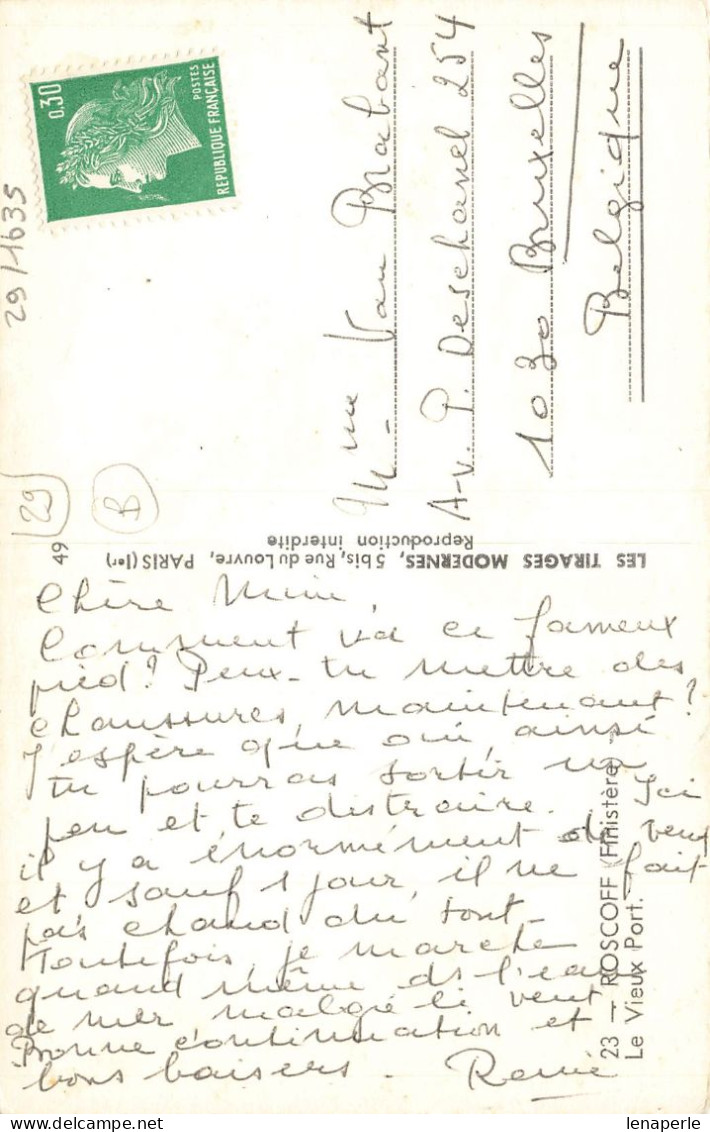 0,30
POSTES
REPUBLIQUE FRANÇAISE
29/1635
29
B
49
Mme Van Brabant
Av. P. Deschanel 254
1030 Bruxelles
Belgique
LES TIRAGES MODERNES, 5 bis, Rue du Louvre, PARIS (Ier)
Reproduction interdite
Chère Mimi,
Comment va ce fameux
pied? Peux-tu mettre des
chaussures, maintenant?
J'espère que oui, ainsi
tu pourras sortir un
peu et te distraire. Ici
il y a énormément de vent
et sauf 1 jour, il ne fait
pas chaud du tout.
Toutefois, je marche
quand même ds l'eau
de mer malgré le vent
Bonne continuation et
bons baisers.
23 — ROSCOFF (Finistère)
Le Vieux Port.
lenaperle